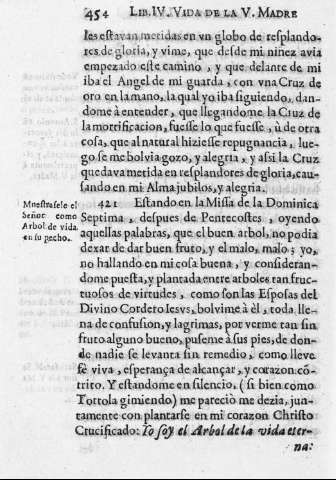 454 LIB. IV. VIDA DE LA V. MADRE
les estavan metidas en vn globo de resplando-
res de gloria, y vime, que desde mi niñez avia
empezado este camino, y que delante de mi
iba el Angel de mi guarda, con vna Cruz de
oro en la mano, la qual yo iba siguiendo, dan-
dome à entender, que llegandome la Cruz de
la mortificacion, fuesse lo que fuesse, ù de otra
cosa, que al natural hiziesse repugnancia, lue-
go se me bolvia gozo, y alegria, y assi la Cruz
quedava metida en resplandores de gloria, cau-
sando en mi Alma jubilos, y alegria.
Muestrasele el
Señor como
Arbol de vida
en su pecho.
421 Estando en la Missa de la Dominica
Septima, despues de Pentecostes, oyendo
aquellas palabras, que el buen arbol, no podia
dexar de dar buen fruto, y el malo, malo; yo,
no hallando en mi cosa buena, y consideran-
dome puesta, y plantada entre arboles tan fruc-
tuosos de virtudes, como son las Esposas del
Divino Cordero Iesvs, bolvime à èl, toda lle-
na de confusion, y lagrimas, por verme tan sin
fruto alguno bueno, puseme à sus pies, de don-
de nadie se levanta sin remedio, como lleve
fè viva, esperança de alcançar, y corazon cõ-
trito. Y estandome en silencio, (si bien como
Tortola gimiendo) me pareciò me dezia, jun-
tamente con plantarse en mi corazon Christo
Crucificado: Yo soy el Arbol de la vida eter-
na: